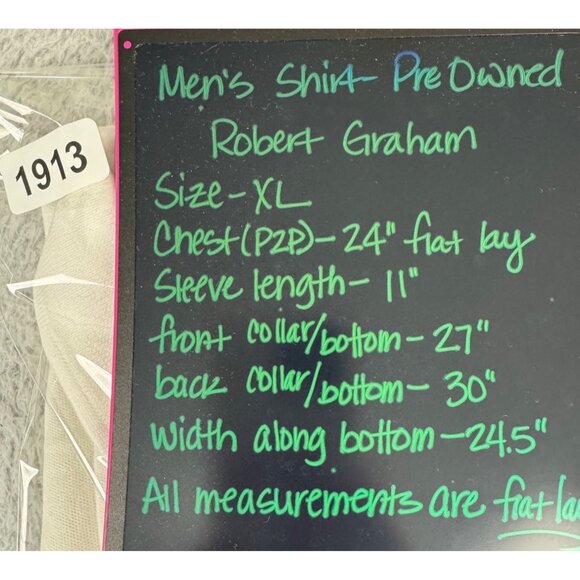 Men's Shirt- Pre Owned
Robert Graham
1913
Size-XL
Chest(P2P)-24" flat lay
Sleeve length- 11"
front collar/bottom-27"
back collar/bottom- 30"
Width along bottom-24.5"
All measurements are flat la